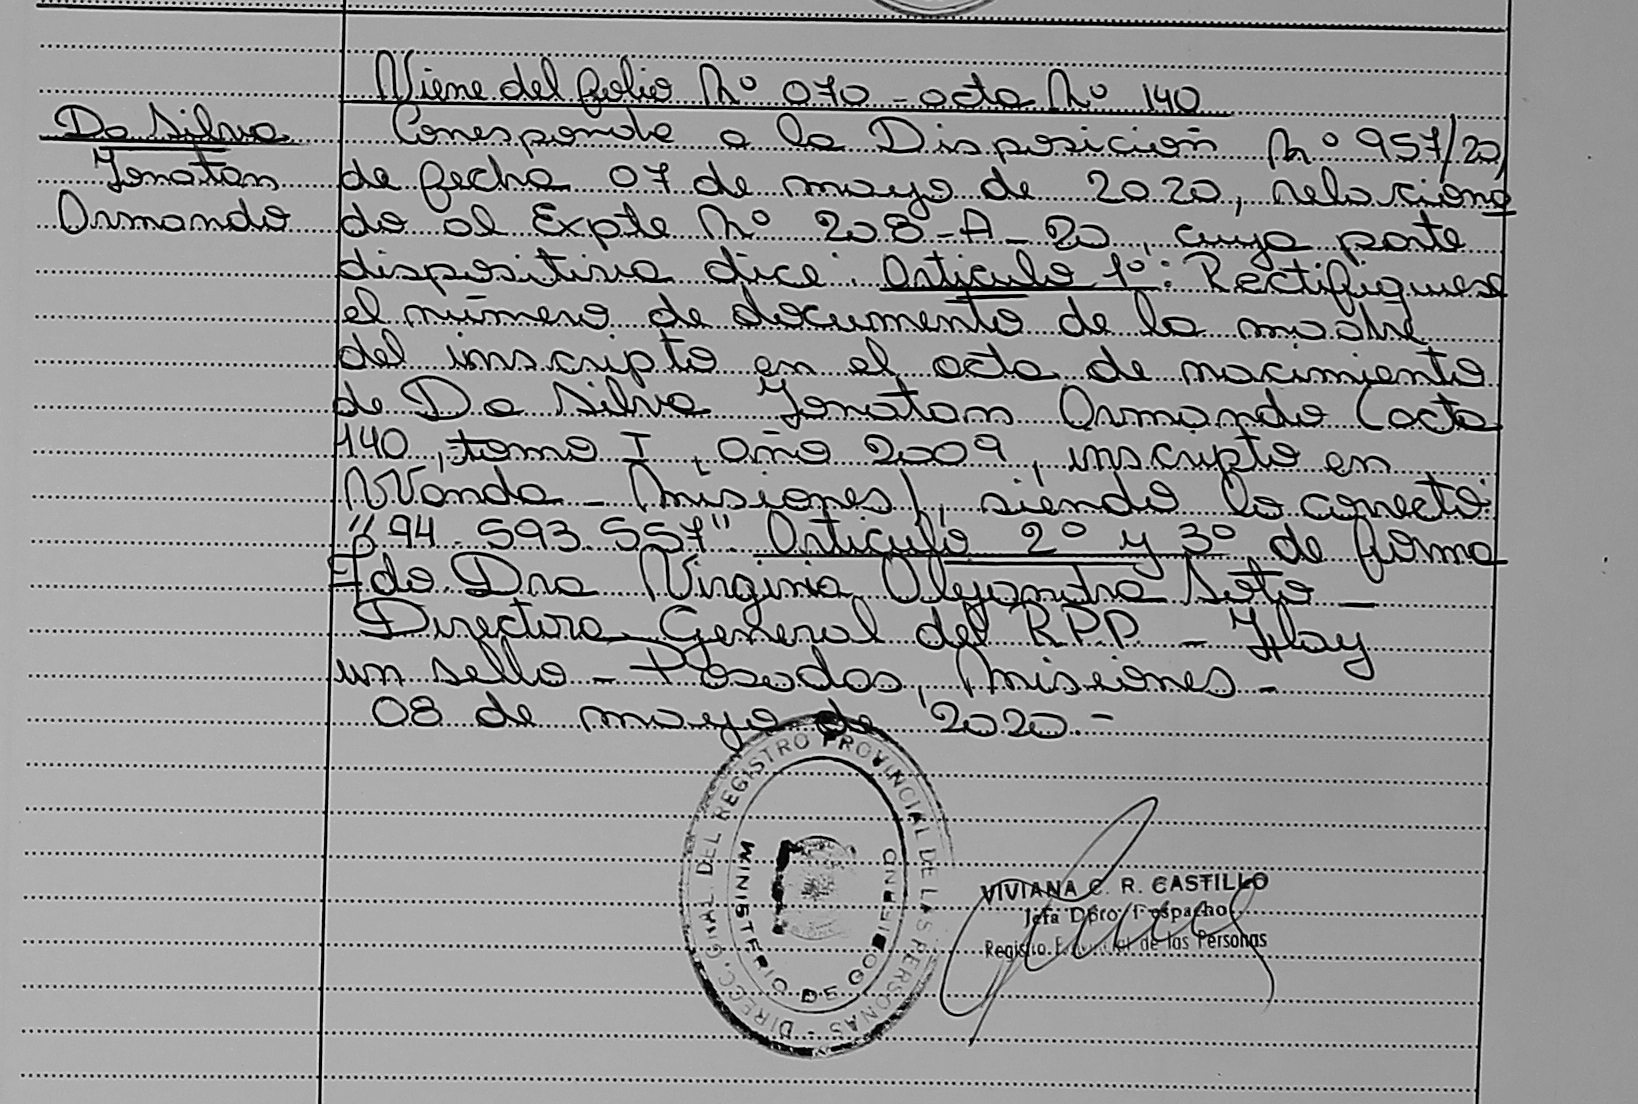 Viene del folio Nº 070 - acta Nº 140
Da Silva
Jonatan
Armando
Corresponde a la Disposición Nº 957/20,
de fecha 07 de mayo de 2020, relaciona
do al Expte Nº 208-A-20, cuya parte
dispositiva dice: Artículo 1º: Rectifíquese
el número de documento de la madre
del inscripto en el acta de nacimiento
de Da Silva Jonatan Armando (acta
140, tomo I, año 2009, inscripto en
Wanda - Misiones), siendo lo correcto:
"94.593.557" Artículo 2º y 3º de forma
Fdo. Dra Virginia Alejandra Soto -
Directora General del RPP - Hay
un sello - Posadas, Misiones -
08 de mayo de 2020.-
DIRECC. GRAL. DEL REGISTRO PROVINCIAL DE LAS PERSONAS -
MINISTERIO DE GOBIERNO
VIVIANA C. R. CASTILLO
Jefa Dpto. Despacho
Registro Provincial de las Personas